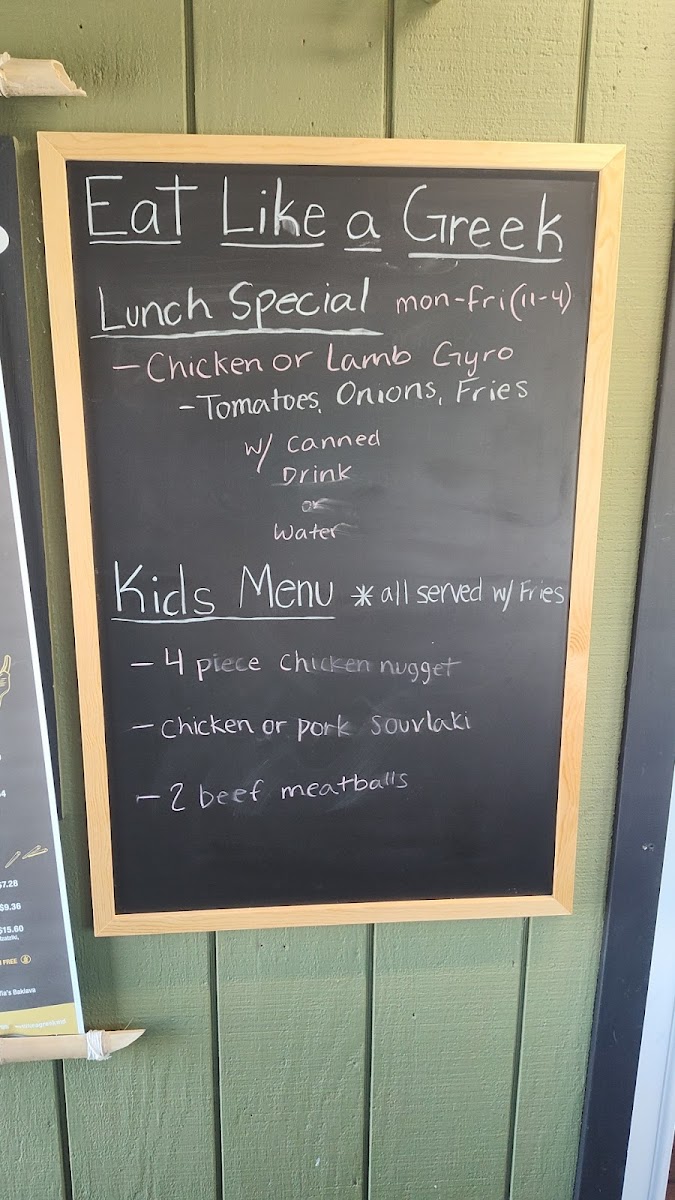 Eat Like a Greek
Lunch Special mon-fri (11-4)
- Chicken or Lamb Gyro
- Tomatoes, Onions, Fries
w/ canned
Drink
or
water
Kids Menu * all served w/ Fries
- 4 piece chicken nugget
- chicken or pork souvlaki
- 2 beef meatballs
$7.28
$9.36
$15.60
FREE
Baklava